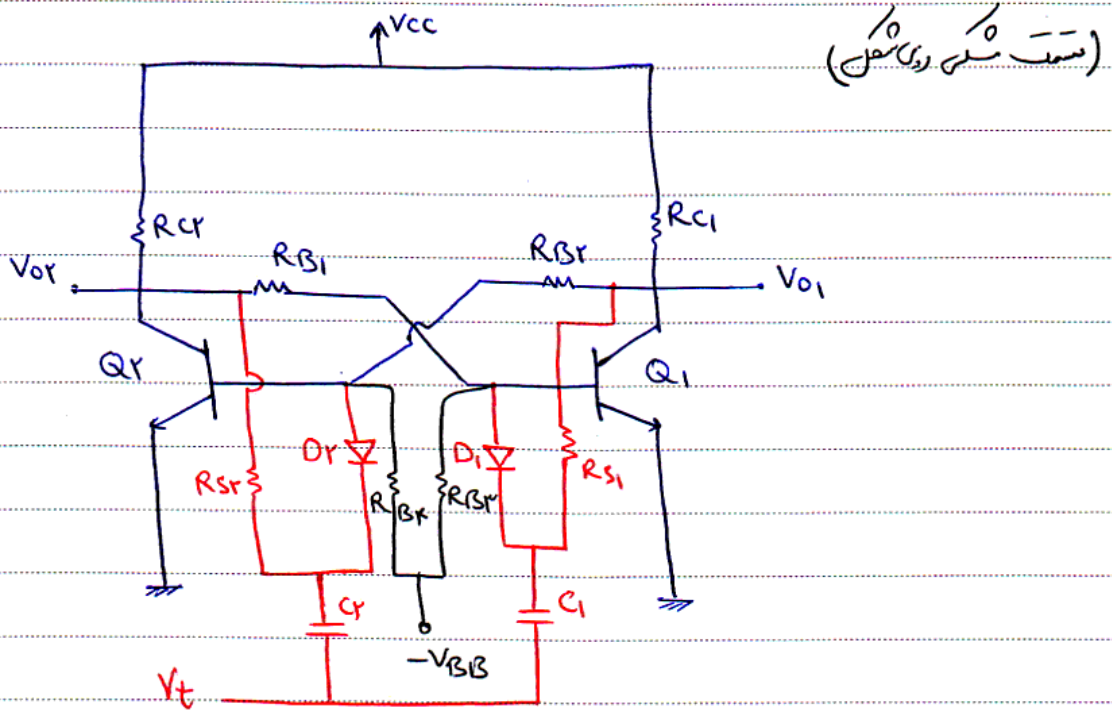 (قسمت مشکی روی شکل)
VCC
RC۲
RC۱
VO۲
RB۱
RB۲
VO۱
Q۲
Q۱
D۲
D۱
RS۲
RB۴
RB۳
RS۱
C۲
C۱
-VBB
Vt